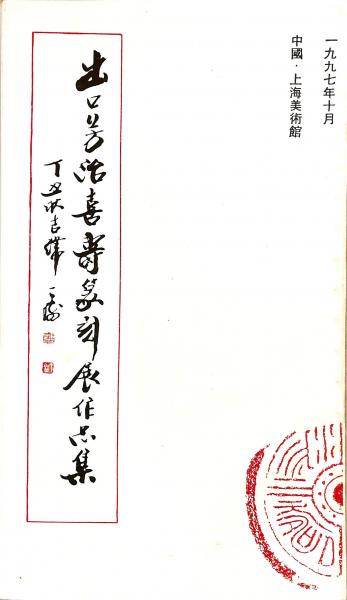 一九九七年十月
中國・上海美術館
出口芳治喜壽篆刻展作品集
丁丑秋